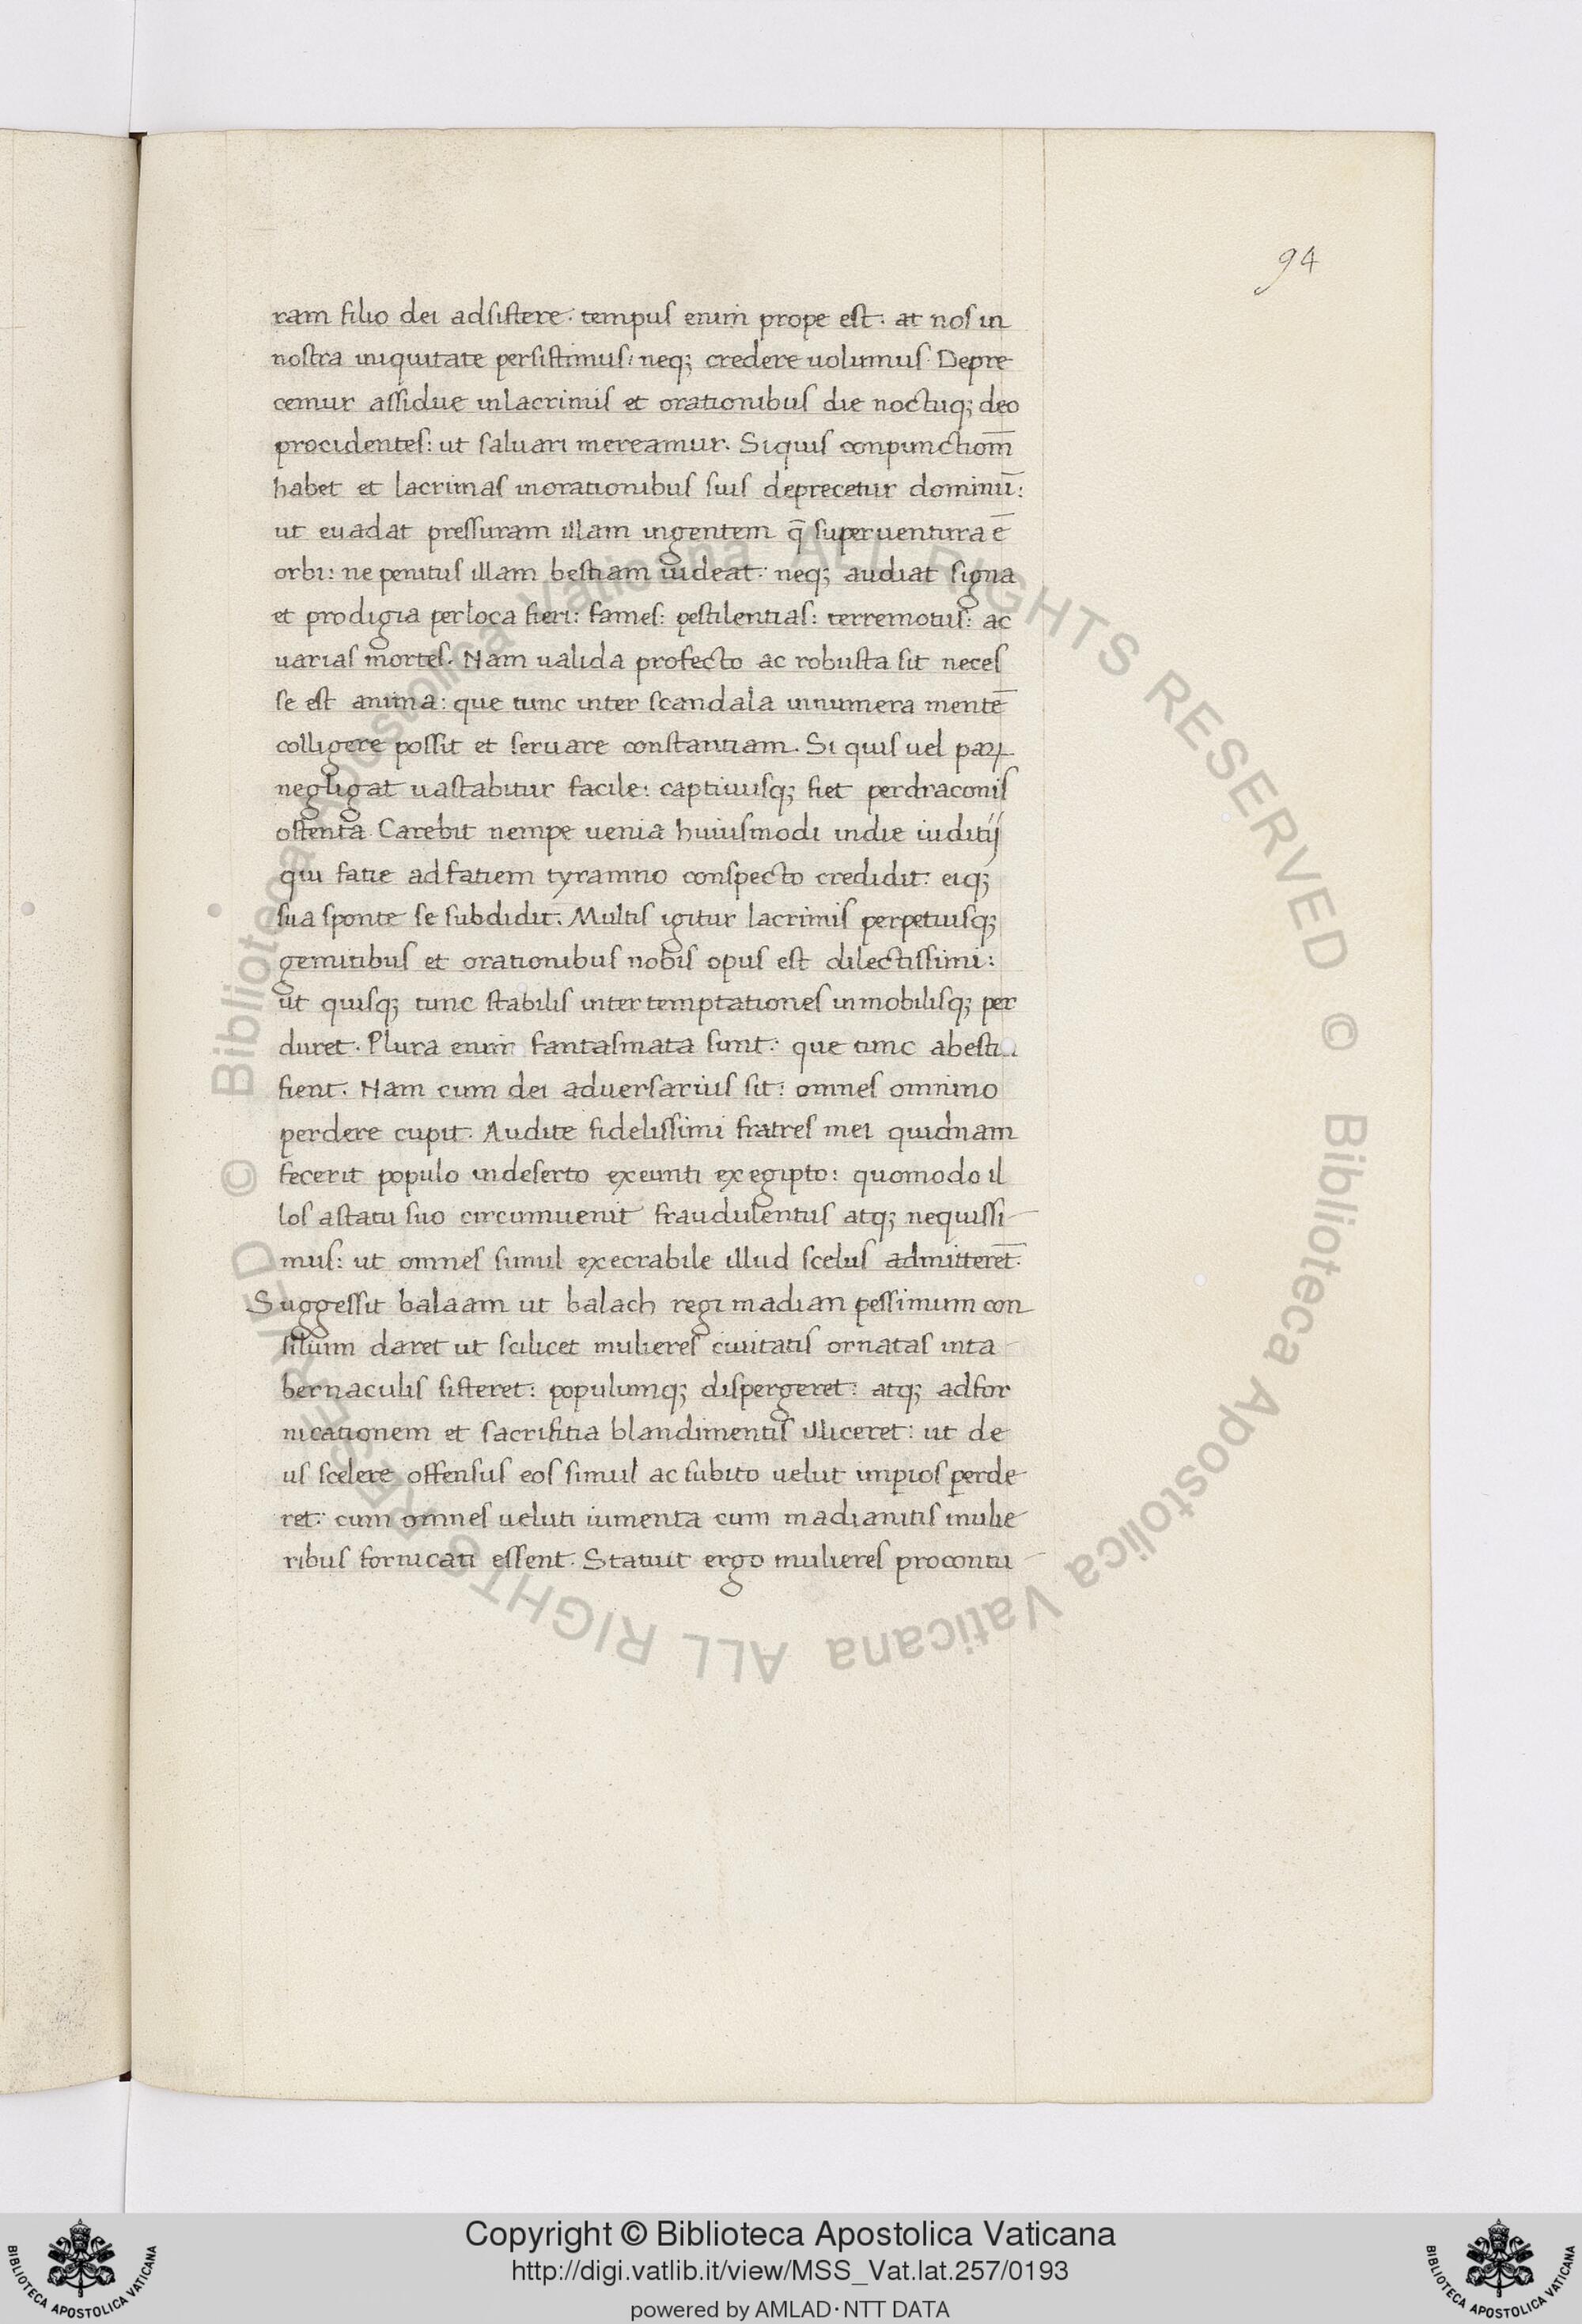 94
ram filio dei adsistere. tempus enim prope est. at nos in
nostra iniquitate persistimus: neq; credere uolumus. Depre
cemur assidue inlacrimis et orationibus die noctuq; deo
procidentes: ut saluari mereamur. Siquis conpunctiom̅
habet et lacrimas inorationibus suis deprecetur dominu̅:
ut euadat pressuram illam ingentem q̅ superuentura e̅
orbi: ne penitus illam bestiam uideat: neq; audiat signa
et prodigia perloca fieri: fames: pestilentias: terremotus: ac
uarias mortes. Nam ualida profecto ac robusta sit neces
se est anima: que tunc inter scandala innumera mente̅
colligere possit et seruare constantiam. Si quis uel paꝝ
negligat uastabitur facile: captiuusq; fiet perdraconis
ostenta. Carebit nempe uenia huiusmodi indie iuditij
qui fatie adfatiem tyramno conspecto credidit: eiq;
sua sponte se subdidit. Multis igitur lacrimis perpetuisq;
gemitibus et orationibus nobis opus est dilectissimi:
ut quisq; tunc stabilis inter temptationes inmobilisq; per
duret. Plura enim fantasmata sunt: que tunc abesti
fient. Nam cum dei aduersarius sit: omnes omnino
perdere cupit. Audite fidelissimi fratres mei quidnam
fecerit populo indeserto exeunti exegipto: quomodo il
los astatu suo circumuenit fraudulentus atq; nequissi
mus: ut omnes simul execrabile illud scelus admitteret̅.
Suggessit balaam ut balach regi madian pessimum con
silium daret ut scilicet mulieres ciuitatis ornatas inta
bernaculis sisteret: populumq; dispergeret: atq; adfor
nicationem et sacrifitia blandimentis illiceret: ut de
us scelere offensus eos simul ac subito uelut impios perde
ret: cum omnes ueluti iumenta cum madianitis mulie
ribus fornicati essent. Statuit ergo mulieres procontu
© Biblioteca Apostolica Vaticana ALL RIGHTS RESERVED © Biblioteca Apostolica Vaticana ALL RIGHTS RESERVED
Copyright © Biblioteca Apostolica Vaticana
http://digi.vatlib.it/view/MSS_Vat.lat.257/0193
powered by AMLAD·NTT DATA
BIBLIOTECA APOSTOLICA VATICANA
BIBLIOTECA APOSTOLICA VATICANA